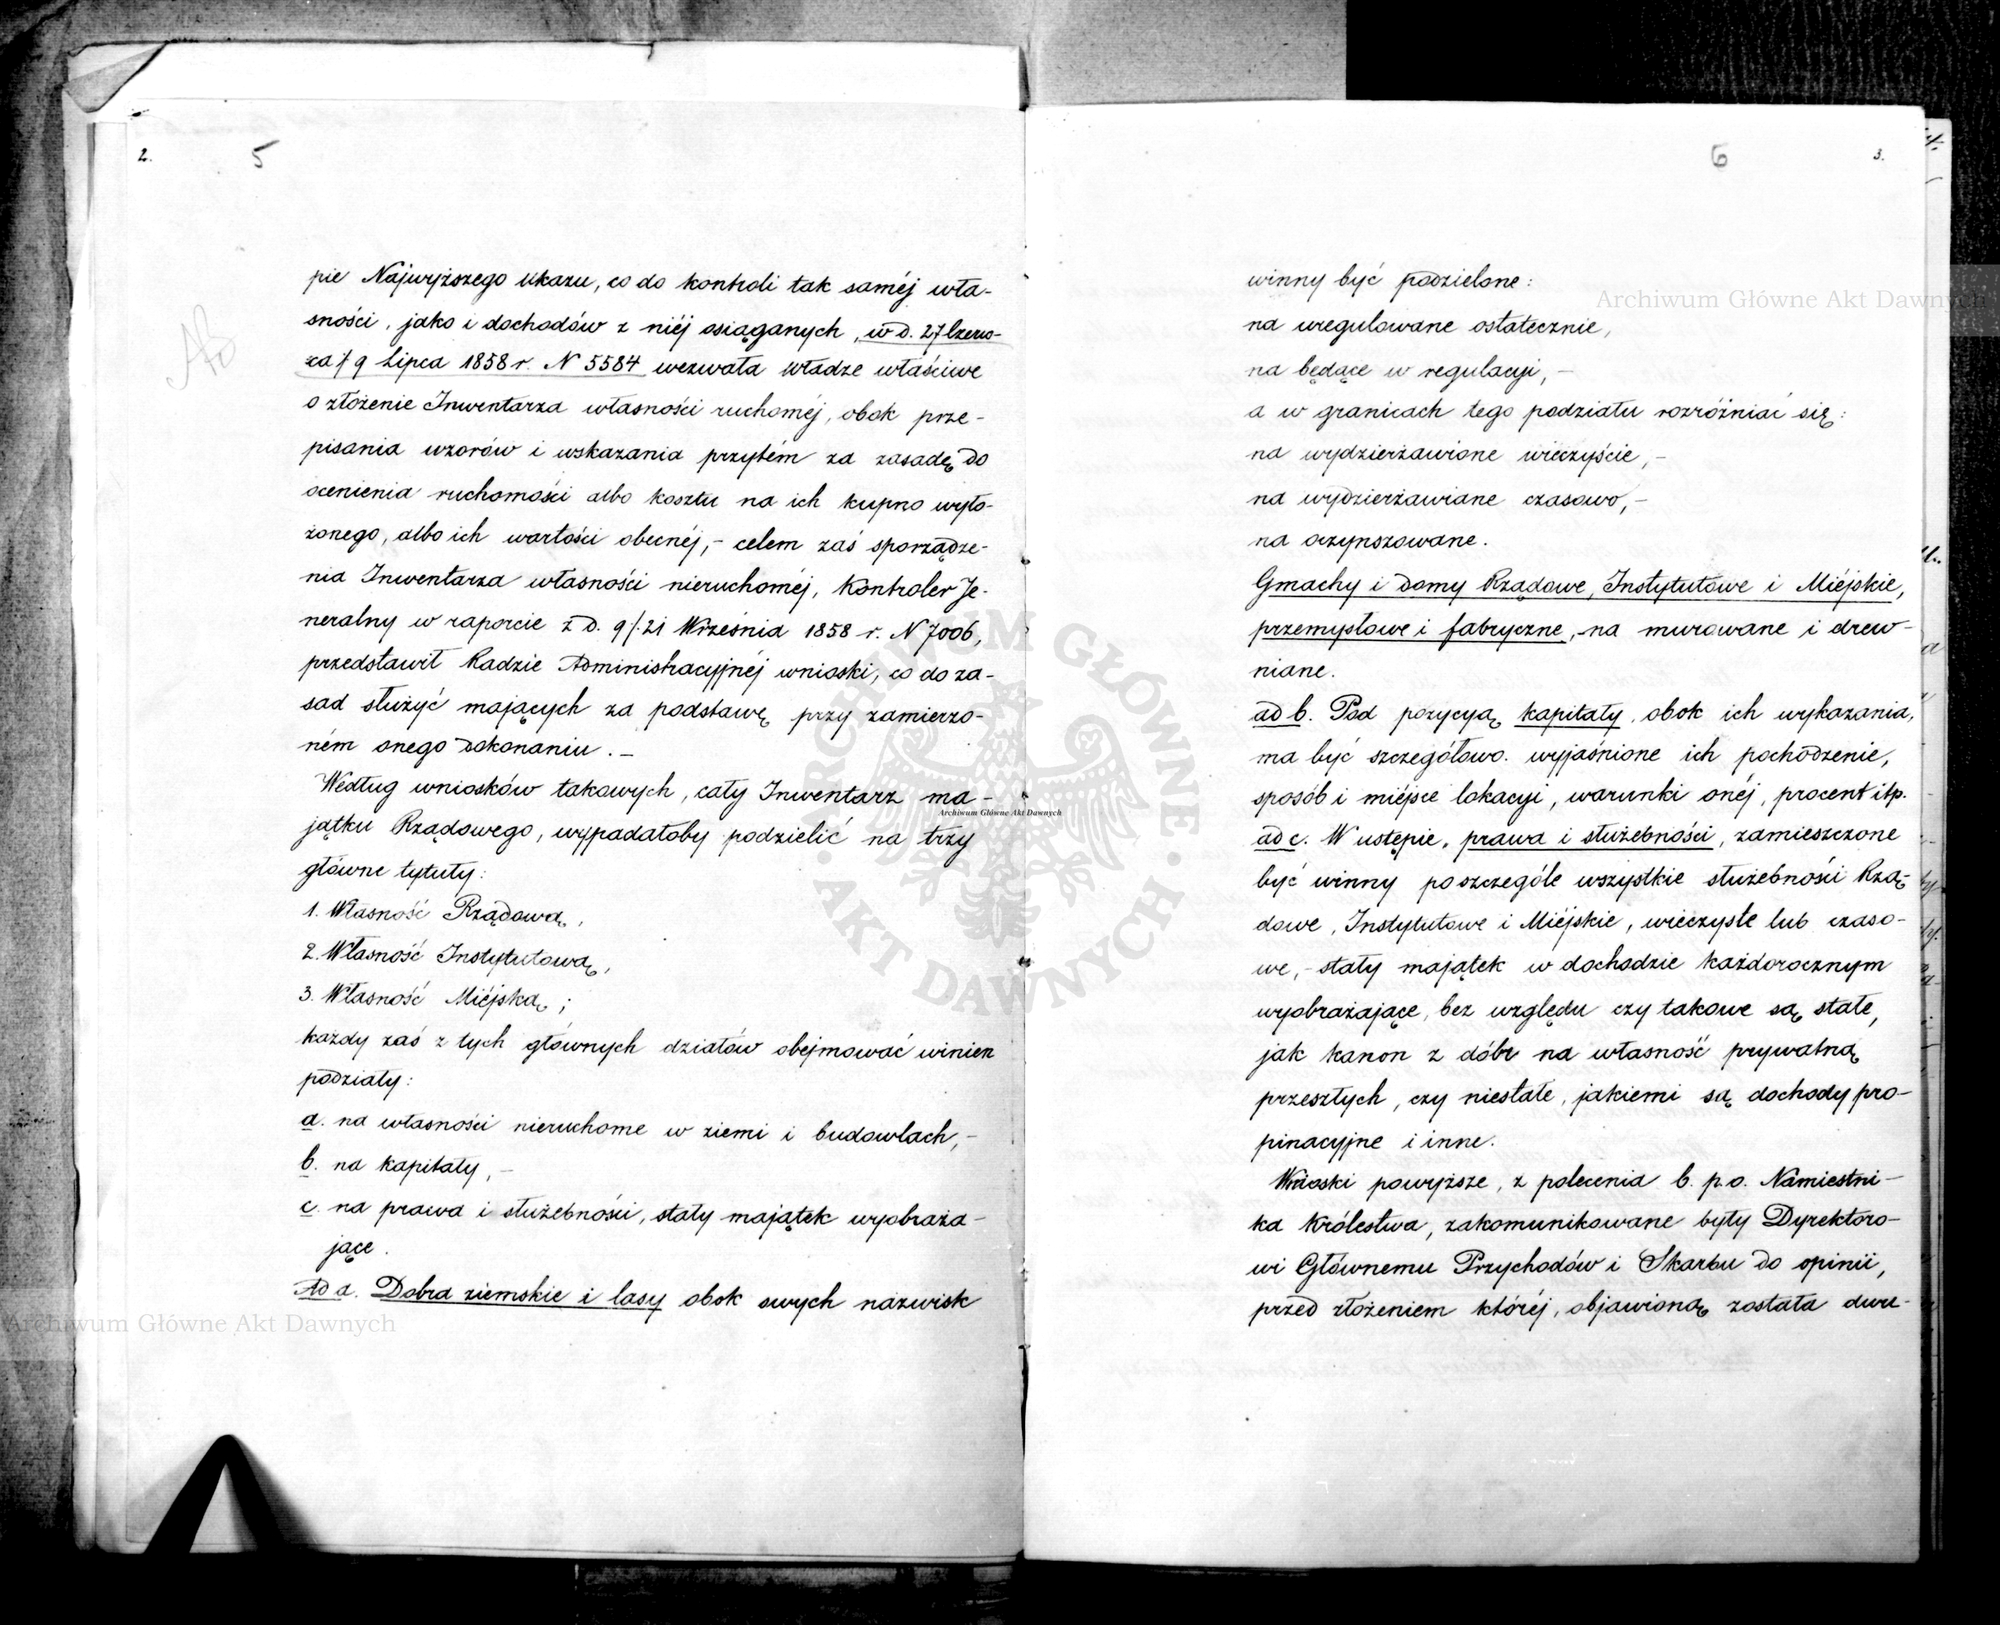 2. 5
pie Najwyższego Ukazu, co do kontroli tak saméj wła-
sności, jako i dochodów z niéj osiąganych, w d. 27 Czerw-
ca / 9 Lipca 1858 r. N 5584 wezwała władze właściwe
o złożenie Inwentarza własności ruchoméj, obok prze-
pisania wzorów i wskazania przytém za zasadę do
ocenienia ruchomości albo kosztu na ich kupno wyło-
żonego, albo ich wartości obecnéj, – celem zaś sporządze-
nia Inwentarza własności nieruchoméj, Kontroler Je-
neralny w raporcie z d. 9/21 Września 1858 r. N 7006,
przedstawił Radzie Administracyjnéj wnioski, co do za-
sad służyć mających za podstawę przy zamierzo-
ném onego dokonaniu. –
Według wniosków takowych, cały Inwentarz ma-
jątku Rządowego, wypadałoby podzielić na trzy
główne tytuły:
1. Własność Rządową,
2. Własność Instytutową,
3. Własność Miéjską;
każdy zaś z tych głównych działów obejmować winien
podziały:
a. na własności nieruchome w ziemi i budowlach, –
b. na kapitały, –
c. na prawa i służebności, stały majątek wyobraża-
jące.
Ad a. Dobra ziemskie i lasy obok swych nazwisk
6 3.
winny być podzielone:
na uregulowane ostatecznie,
na będące w regulacyi, –
a w granicach tego podziału rozróżniać się:
na wydzierżawione wieczyście, –
na wydzierżawiane czasowo, –
na oczynszowane.
Gmachy i domy Rządowe, Instytutowe i Miéjskie,
przemysłowe i fabryczne, – na murowane i drew-
niane.
ad b. Pod pozycyą kapitały, obok ich wykazania,
ma być szczegółowo wyjaśnione ich pochodzenie,
sposób i miéjsce lokacyi, warunki onéj, procent itp.
ad c. W ustępie, prawa i służebności, zamieszczone
być winny poszczególe wszystkie służebności Rzą-
dowe, Instytutowe i Miéjskie, wieczyste lub czaso-
we, – stały majątek w dochodzie każdorocznym
wyobrażające, bez względu czy takowe są stałe,
jak kanon z dóbr na własność prywatną
przeszłych, czy niestałe, jakiemi są dochody pro-
pinacyjne i inne.
Wnioski powyższe, z polecenia b. p. o. Namiestni-
ka Królestwa, zakomunikowane były Dyrektoro-
wi Głównemu Przychodów i Skarbu do opinii,
przed złożeniem któréj, objawioną została dwu-
Archiwum Główne Akt Dawnych
Archiwum Główne Akt Dawnych
Archiwum Główne Akt Dawnych
ARCHIWUM GŁÓWNE
AKT DAWNYCH